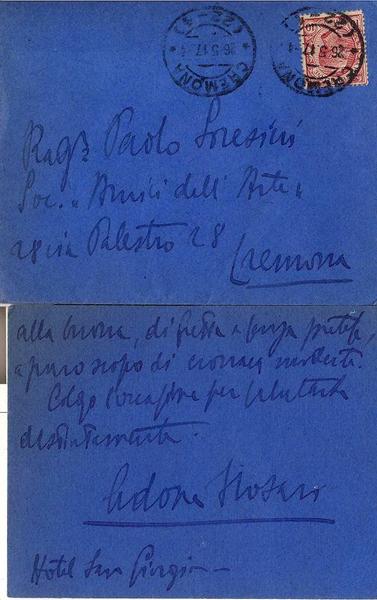 CREMONA
26.5.17
(22-4)
CREMONA
26.5.17
(22-4)
Rag. Paolo Soresini
Soc. "Amici dell'Arte"
28 via Palestro 28
Cremona
alla buona, di fretta e senza pretese,
a puro scopo di cronaca
Colgo l'occasione per salutarla
distintamente.
Hotel San Giorgio